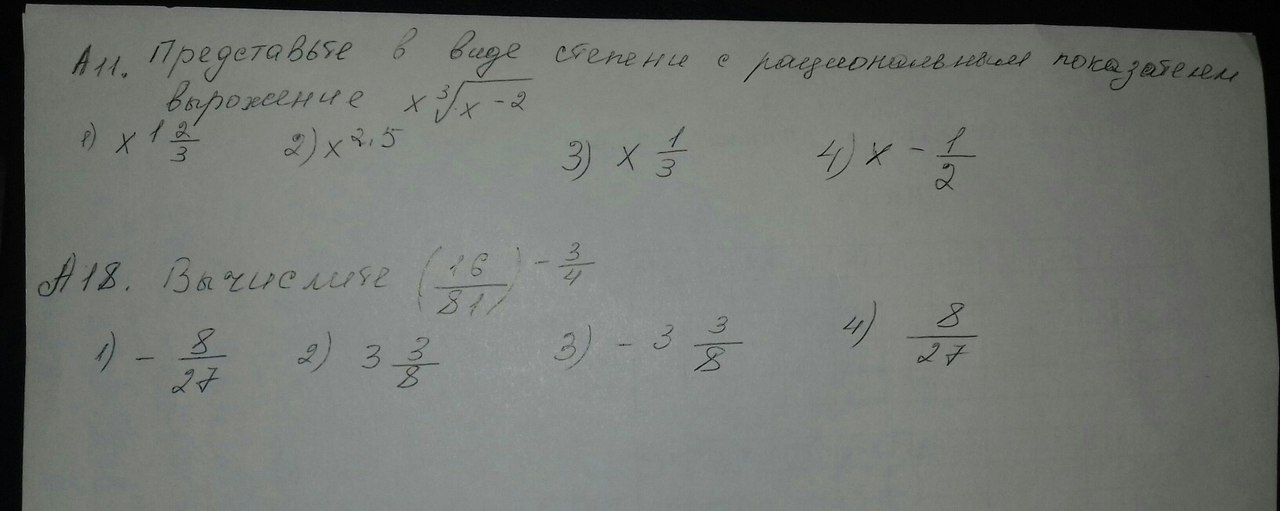 А11. Представьте в виде степени с рациональным показателем
выражение x∛(x^-2)
1) x^1 2/3 2) x^2,5 3) x^1/3 4) x^-1/2
А18. Вычислите (16/81)^-3/4
1) -8/27 2) 3 3/8 3) -3 3/8 4) 8/27